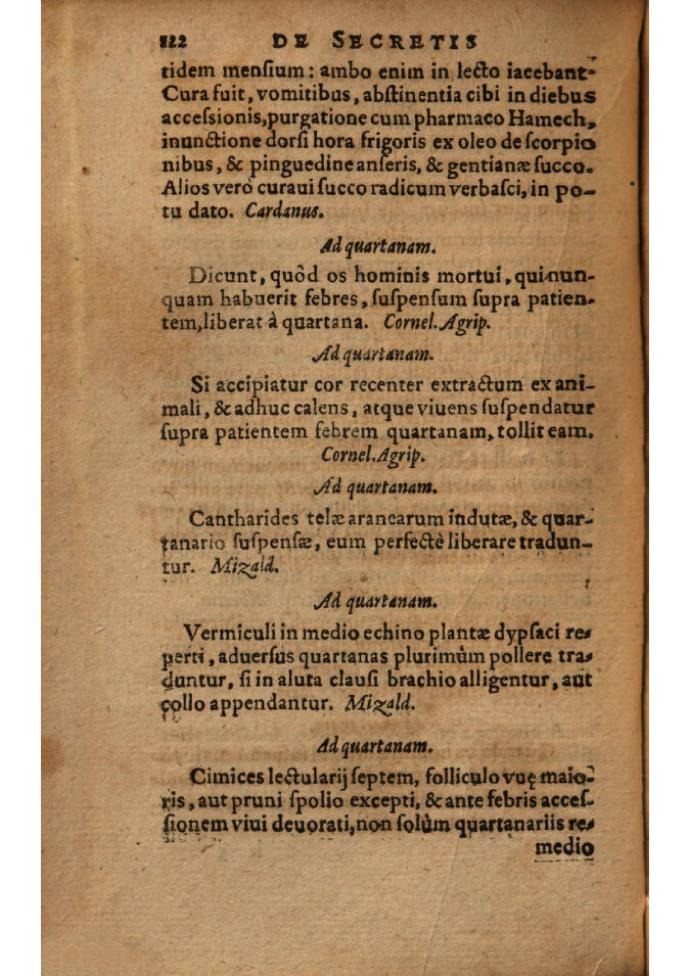 122 DE SECRETIS
tidem menſium: ambo enim in lecto iacebant
Cura fuit, vomitibus, abſtinentia cibi in diebus
acceſsionis, purgatione cum pharmaco Hamech,
inunctione dorſi hora frigoris ex oleo de ſcorpio
nibus, & pinguedine anſeris, & gentianæ ſucco.
Alios verò curaui ſucco radicum verbaſci, in po-
tu dato. Cardanus.
Ad quartanam.
Dicunt, quôd os hominis mortui, qui nun-
quam habuerit febres, ſuſpenſum ſupra patien-
tem, liberat à quartana. Cornel. Agrip.
Ad quartanam.
Si accipiatur cor recenter extractum ex ani-
mali, & adhuc calens, atque viuens ſuſpendatur
ſupra patientem febrem quartanam, tollit eam.
Cornel. Agrip.
Ad quartanam.
Cantharides telæ aranearum indutæ, & quar-
tanario ſuſpenſæ, eum perfectè liberare tradun-
tur. Mizald.
Ad quartanam.
Vermiculi in medio echino plantæ dypſaci re-
perti, aduerſus quartanas plurimùm pollere tra-
duntur, ſi in aluta clauſi brachio alligentur, aut
collo appendantur. Mizald.
Ad quartanam.
Cimices lectularij ſeptem, folliculo vuę maio-
ris, aut pruni ſpolio excepti, & ante febris acceſ-
ſionem viui deuorati, non ſolùm quartanariis re-
medio